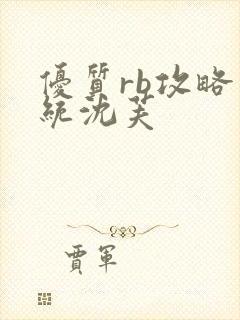 優質rb攻略
統沈芙
賈軍